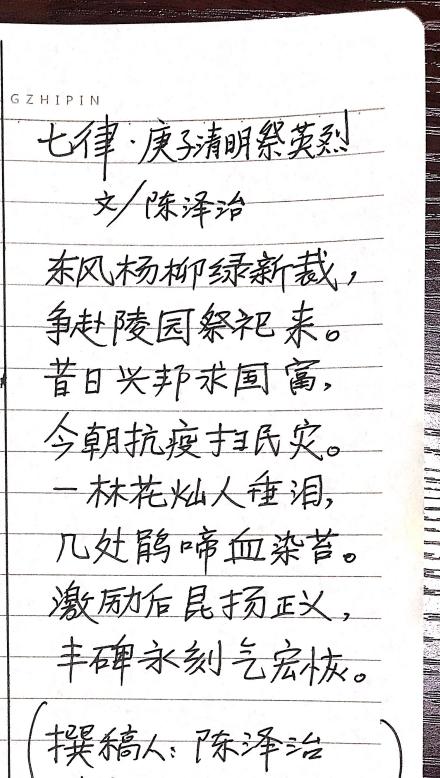 GZHIPIN
七律·庚子清明祭英烈
文/陈泽治
东风杨柳绿新裁,
争赴陵园祭祀来。
昔日兴邦求国富,
今朝抗疫扫民灾。
一林花灿人垂泪,
几处鹃啼血染苔。
激励后昆扬正义,
丰碑永刻气宏恢。
(撰稿人:陈泽治)